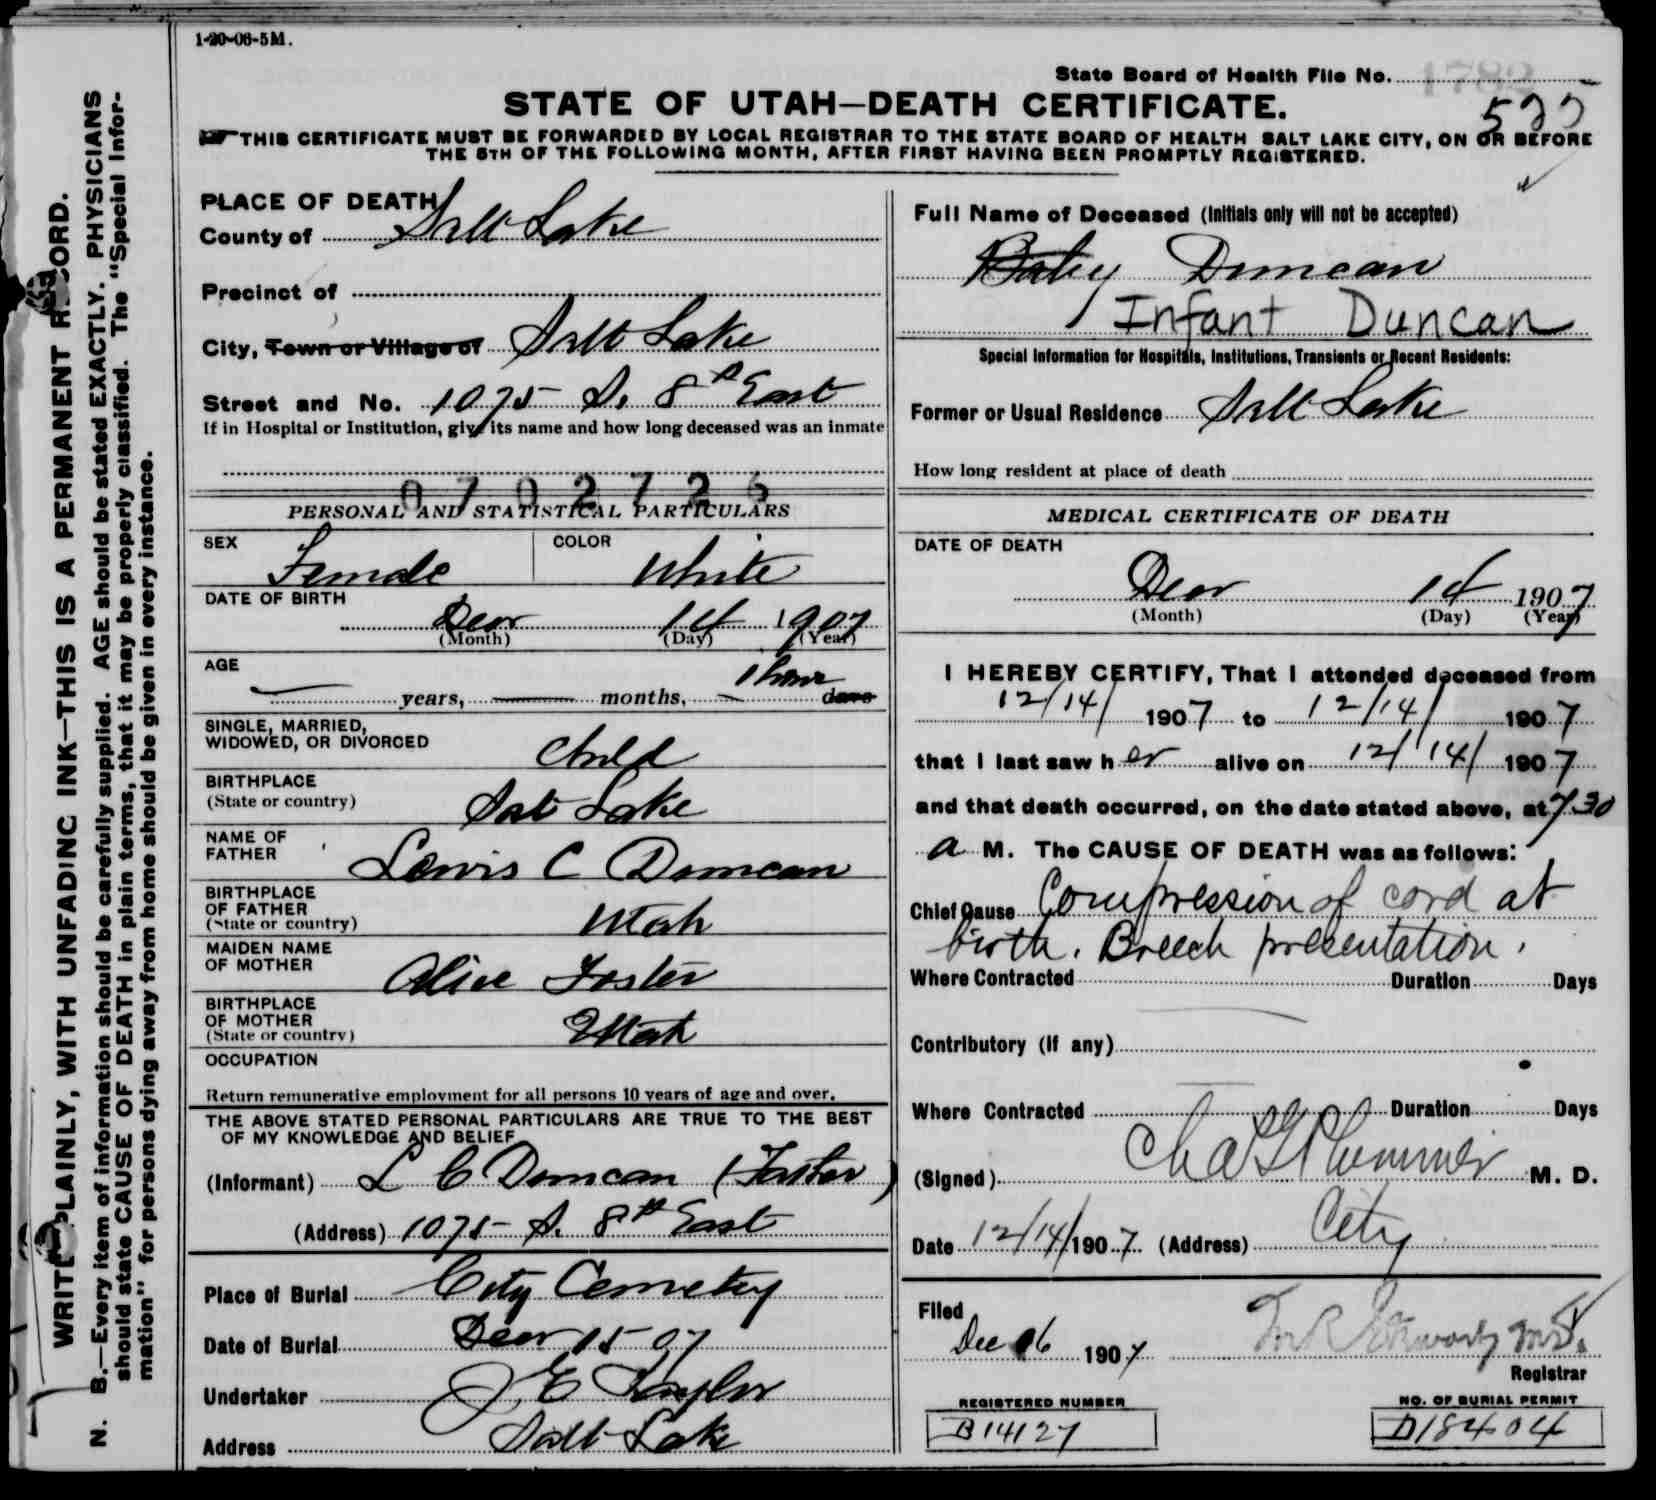 1-20-06-5M.
State Board of Health File No.
STATE OF UTAH—DEATH CERTIFICATE.
THIS CERTIFICATE MUST BE FORWARDED BY LOCAL REGISTRAR TO THE STATE BOARD OF HEALTH SALT LAKE CITY, ON OR BEFORE
THE 5TH OF THE FOLLOWING MONTH, AFTER FIRST HAVING BEEN PROMPTLY REGISTERED.
WRITE PLAINLY, WITH UNFADING INK—THIS IS A PERMANENT RECORD.
N. B.—Every item of information should be carefully supplied. AGE should be stated EXACTLY. PHYSICIANS
should state CAUSE OF DEATH in plain terms, that it may be properly classified. The "Special Infor-
mation" for persons dying away from home should be given in every instance.
PLACE OF DEATH
County of Salt Lake
Precinct of
City, Town or Village of Salt Lake
Street and No. 1075 S. 8th East
If in Hospital or Institution, give its name and how long deceased was an inmate
0702726
PERSONAL AND STATISTICAL PARTICULARS
SEX Female COLOR White
DATE OF BIRTH
Decr 14 1907
(Month) (Day) (Year)
AGE 1 hour
years, months, days
SINGLE, MARRIED,
WIDOWED, OR DIVORCED Child
BIRTHPLACE
(State or country) Salt Lake
NAME OF
FATHER Lewis C Duncan
BIRTHPLACE
OF FATHER
(State or country) Utah
MAIDEN NAME
OF MOTHER Alice Foster
BIRTHPLACE
OF MOTHER
(State or country) Utah
OCCUPATION
Return remunerative employment for all persons 10 years of age and over.
THE ABOVE STATED PERSONAL PARTICULARS ARE TRUE TO THE BEST
OF MY KNOWLEDGE AND BELIEF
(Informant) L C Duncan (Father)
(Address) 1075 S. 8th East
Place of Burial City Cemetery
Date of Burial Decr 15-07
Undertaker J E Taylor
Address Salt Lake
Full Name of Deceased (Initials only will not be accepted)
Baby Duncan
Infant Duncan
Special Information for Hospitals, Institutions, Transients or Recent Residents:
Former or Usual Residence Salt Lake
How long resident at place of death
MEDICAL CERTIFICATE OF DEATH
DATE OF DEATH
Decr 14 1907
(Month) (Day) (Year)
I HEREBY CERTIFY, That I attended deceased from
12/14/ 1907 to 12/14/ 1907
that I last saw her alive on 12/14/ 1907
and that death occurred, on the date stated above, at 7.30
a M. The CAUSE OF DEATH was as follows:
Chief Cause Compression of cord at
birth. Breech presentation.
Where Contracted Duration Days
Contributory (if any)
Where Contracted Duration Days
(Signed) Chas G Plummer M. D.
Date 12/14/1907 (Address) City
Filed
Dec 16 1907
Registrar
REGISTERED NUMBER
B14127
NO. OF BURIAL PERMIT
D18404